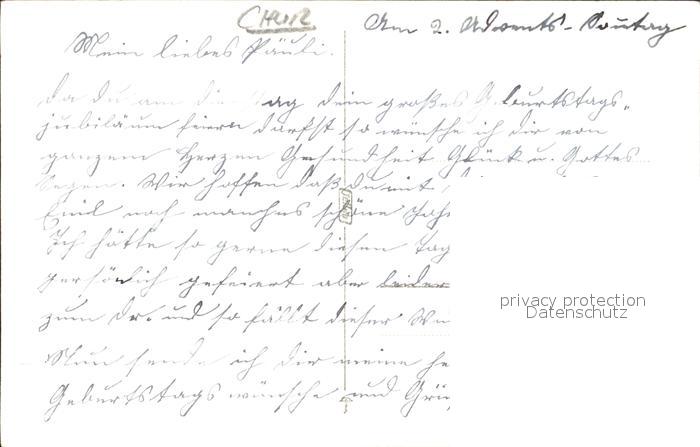 CHUR
Am 2. Advents-Sonntag
Mein liebes Päuli.
Da du am Dienstag dein großes Geburtstags-
jubiläum feiern darfst so wünsche ich dir von
ganzem Herzen Gesundheit Glück u. Gottes
Segen. Wir hoffen daß du mit
Emil noch manches schöne Jah
Ich hätte so gerne diesen Tag
persönlich gefeiert aber leider
zum Dr. und so fällt dieser
Nun sende ich dir meine he
Geburtstagswünsche und Grü
privacy protection
Datenschutz